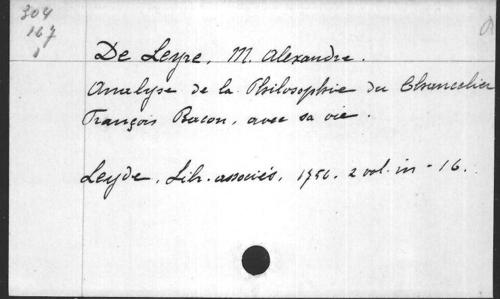 304
167
1
De Leyre, M. Alexandre.
Analyse de la Philosophie du Chancelier
François Bacon, avec sa vie.
Leyde, Lib. associés, 1756. 2 vol. in-16.